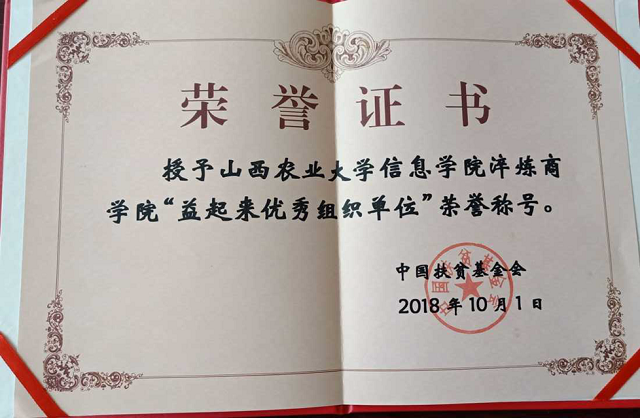 荣誉证书
授予山西农业大学信息学院淬炼商
学院“益起来优秀组织单位”荣誉称号。
中国扶贫基金会
2018年10月1日
中国扶贫基金会